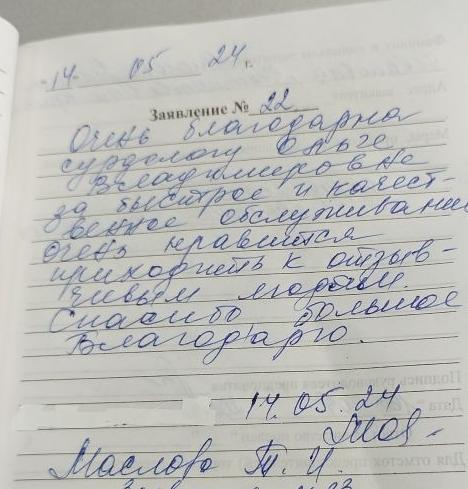 "14" 05 24 г.
Заявление № 22
Очень благодарна
сурдологу Ольге
Владимировне
за быстрое и качест-
венное обслуживание
очень нравится
приходить к отзыв-
чивым людям.
Спасибо большое
Благодарю.
14.05.24
Маслова Т. И.